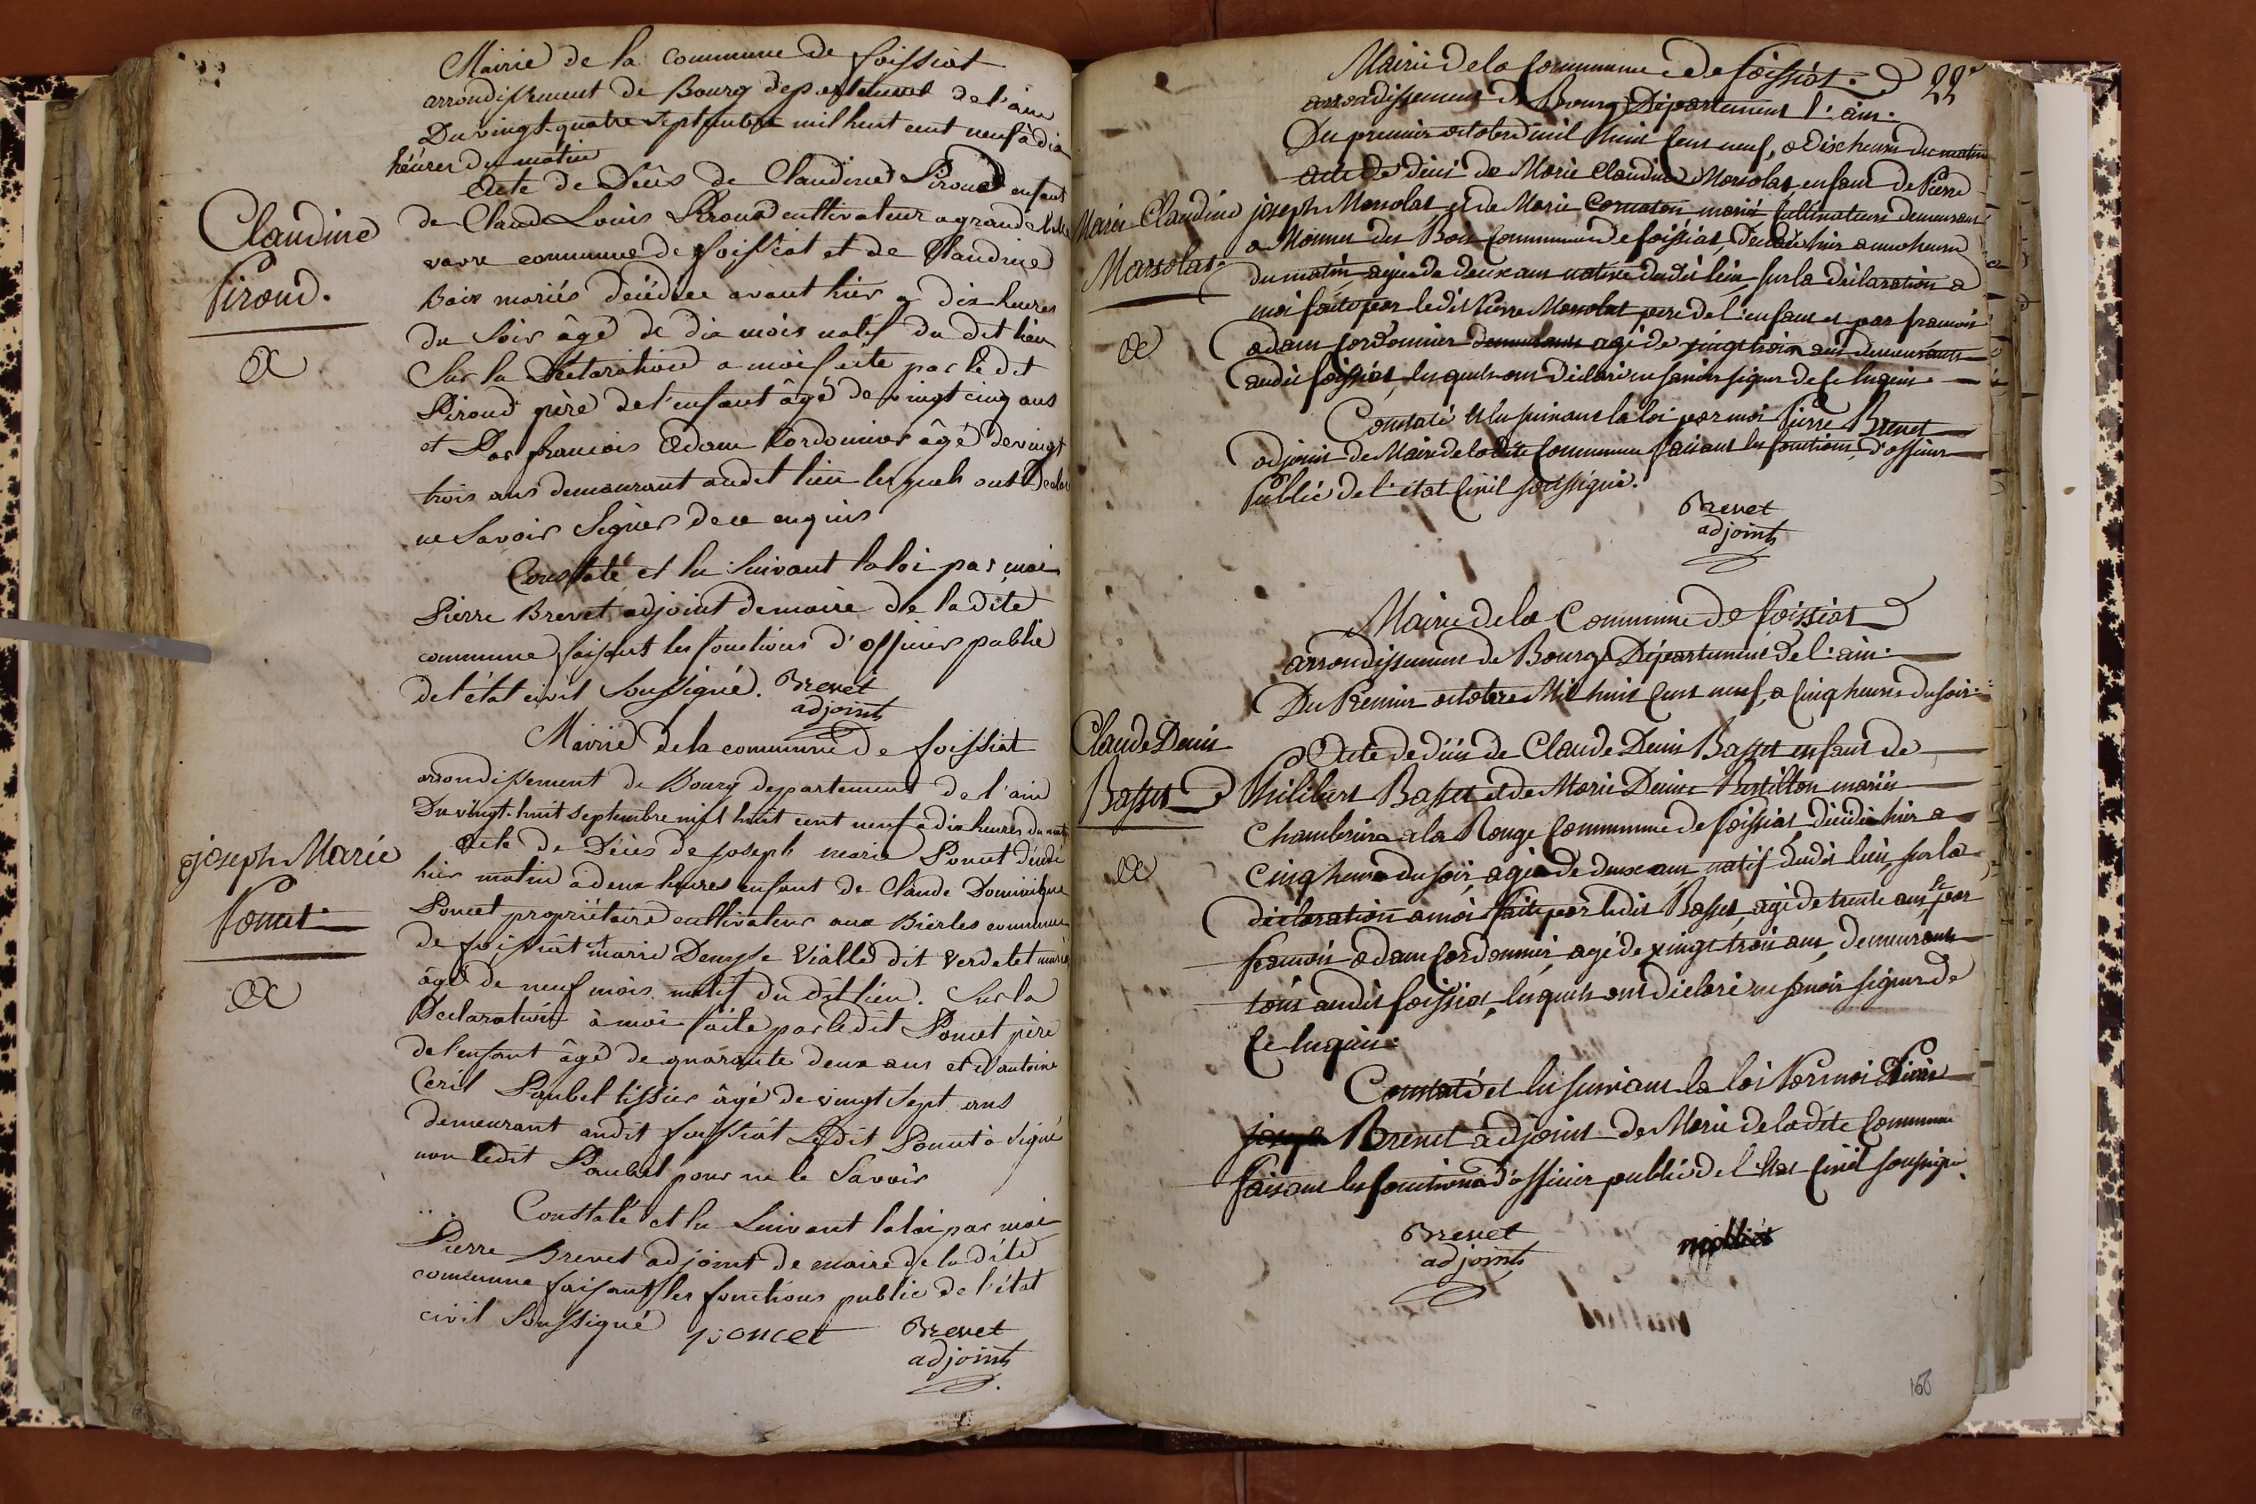 Mairie de la commune de foissiat
arrondissement de Bourg departement de l'ain
Du vingt-quatre septembre mil huit cent neuf à dix
héures du matin
Acte de Décès de Claudine Piroud enfant
de Claude Louis Piroud cultivateur a grande
vavre commune de foissiat et de Claudine
Baix mariés décédée avant hier a dix heures
du soir âgé de dix mois natif du dit lieu
Sur la Déclaration a moi faite par le dit
Piroud père de l'enfant âgé de vingt cinq ans
et Par francois Adam Cordonnier âgé de vingt
trois ans demeurant audit lieu lesquels ont Declaré
ne Savoir Signer de ce enquis
Constaté et lu Suivant la loi par moi
Pierre Brevet adjoint de maire de la dite
commune faisant les fonctions d'officier public
de l'état civil Soussigné. Brevet
adjoint
Claudine
Piroud.
Mairie de la commune de foissiat
arrondissement de Bourg departement de l'ain
Du vingt-huit septembre mil huit cent neuf à dix heures du matin
Acte de Décès de joseph marie Poncet décédé
hier matin à deux heures enfant de Claude Dominique
Poncet propriétaire cultivateur aux Bierles commune
de foissiat et marie Denyse Viallet dit Verdelet mariés
âgé de neuf mois natif du dit lieu. Sur la
Declaration à moi faite par le dit Poncet père
de l'enfant âgé de quarante deux ans et d'antoine
Ceril Paubel tissier âgé de vingt sept ans
demeurant audit foissiat Ledit Poncet à signé
non ledit Paubel pour ne le Savoir
Constaté et lu Suivant la loi par moi
Pierre Brevet adjoint de maire de la dite
commune faisant les fonctions public de l'état
civil Soussigné poncet Brevet
adjoint
joseph Marie
Poncet.
22e
Mairie de la Commune de foissiat.
arrondissement de Bourg Département l'ain.
Du premier octobre mil huit Cent neuf, a dix heures du matin
acte de décés de Marie Claudine Marsolat enfant de Pierre
joseph Marsolat et de Marie Cornaton mariés Cultivateurs demeurant
a Monnet des Bois Commune de foissiat, décédée hier a une heure
du matin, agée de deux ans native du dit lieu, sur la déclaration a
moi faite par ledit Pierre Marsolat pere de l'enfant et par francois
adam Cordonnier demeurant agé de vingt trois ans demeurants
audit foissiat, lesquels ont déclaré ne savoir signer de Ce enquis
Constaté et lu suivant la loi par moi Pierre Brevet
adjoint de Maire de ladite Commune faisant les fonctions, d'officier
Public de l'état Civil soussigné.
Brevet
adjoint
Marie Claudine
Marsolat
Mairie de la Commune de foissiat
arrondissement de Bourg Département de l'ain.
Du Premier octobre Mil huit Cent neuf, a Cinq heures du soir.
Acte de décés de Claude Denis Basset enfant de
Philibert Basset et de Marie Denise Bertillon mariés
a la Rouge Commune de foissiat, décédé hier a
Cinq heures du soir, agé de deux ans natif dudit lieu, sur la
déclaration a moi faite par ledit Basset, agé de trente ans, et par
francois adam Cordonnier, agé de vingt trois ans, demeurant
tous audit foissiat, lesquels ont déclaré ne savoir signer de
Ce enquis.
Constaté et lu suivant la loi Par moi Pierre
joseph Brevet adjoint de Maire de ladite Commune
faisant les fonctions d'officier public de l'état Civil soussigné.
Brevet
adjoint
Claude Denis
Basset
166